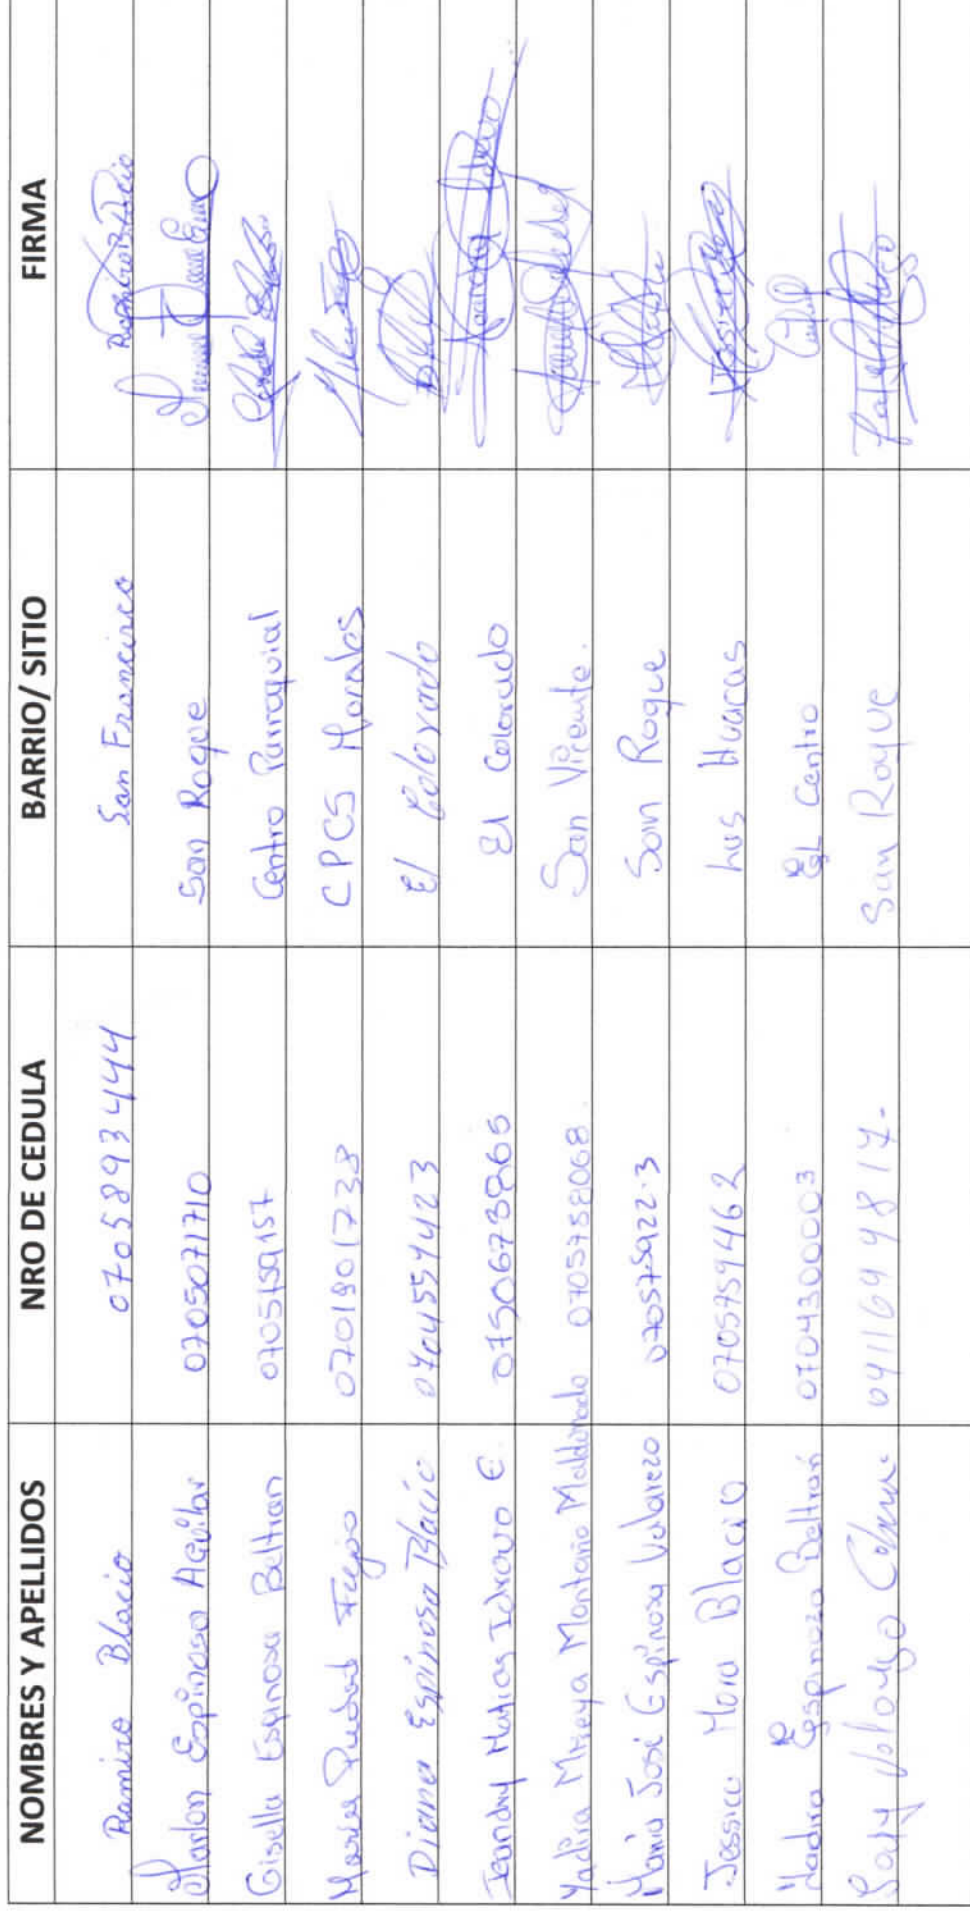 NOMBRES Y APELLIDOS NRO DE CEDULA BARRIO/ SITIO FIRMA
Ramiro Blacio 0705893444 San Francisco
Marlon Espinosa Aguilar 0705071710 San Roque
Gisella Espinosa Beltran 0705159157 Centro Parroquial
Maria Piedad Feijo 0701901738 CPCS Morales
Diana Espinosa Blacio 0704554423 El Colorado
Jeandry Matias Idrovo E. 0750673865 El Colorado
Yadira Mireya Montaño Maldonado 0705758068. San Vicente.
Maria José Espinosa Valarezo 070575922-3 San Roque
Jessica Mora Blacio 0705759462 Las Huacas
Yadira Espinoza Beltrán 0704300003 El Centro
0911694817.- San Roque